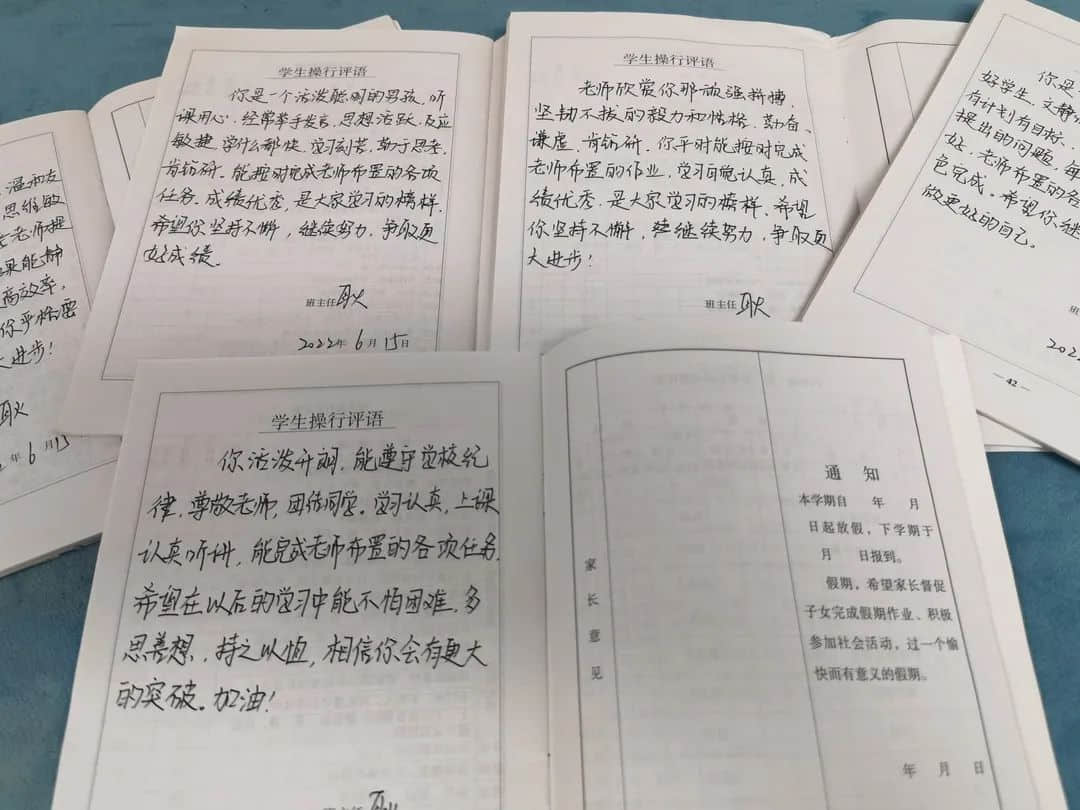 温和友
思维敏
老师提
果能静
高效率,
你严格要
大进步!
耿
年 6 月 15
学生操行评语
你是一个活泼聪明的男孩, 听
课用心, 经常举手发言, 思想活跃, 反应
敏捷, 学什么都快, 学习刻苦, 勤于思考,
肯钻研. 能按时完成老师布置的各项
任务, 成绩优秀, 是大家学习的榜样.
希望你坚持不懈, 继续努力, 争取更
好成绩.
班主任 耿
2022年 6 月 15日
学生操行评语
老师欣赏你那顽强拼搏、
坚韧不拔的毅力和性格, 勤奋、
谦虚, 肯钻研. 你平时能按时完成
老师布置的作业, 学习自觉认真, 成
绩优秀, 是大家学习的榜样. 希望
你坚持不懈, 继续努力, 争取更
大进步!
班主任 耿
你是
好学生, 文静
有计划有目标,
提出的问题, 每
好, 老师布置的各
色完成. 希望你继
做更好的自己.
班
2022
— 42 —
学生操行评语
你活泼开朗, 能遵守学校纪
律, 尊敬老师, 团结同学. 学习认真, 上课
认真听讲, 能完成老师布置的各项任务.
希望在以后的学习中能不怕困难, 多
思善想, 持之以恒, 相信你会有更大
的突破。加油!
班主任 耿
家长意见
通知
本学期自 年 月
日起放假,下学期于
月 日报到。
假期,希望家长督促
子女完成假期作业、积极
参加社会活动,过一个愉
快而有意义的假期。
年 月 日